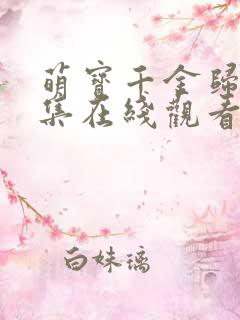 萌寶千金歸
集在綫觀看
白妹璃